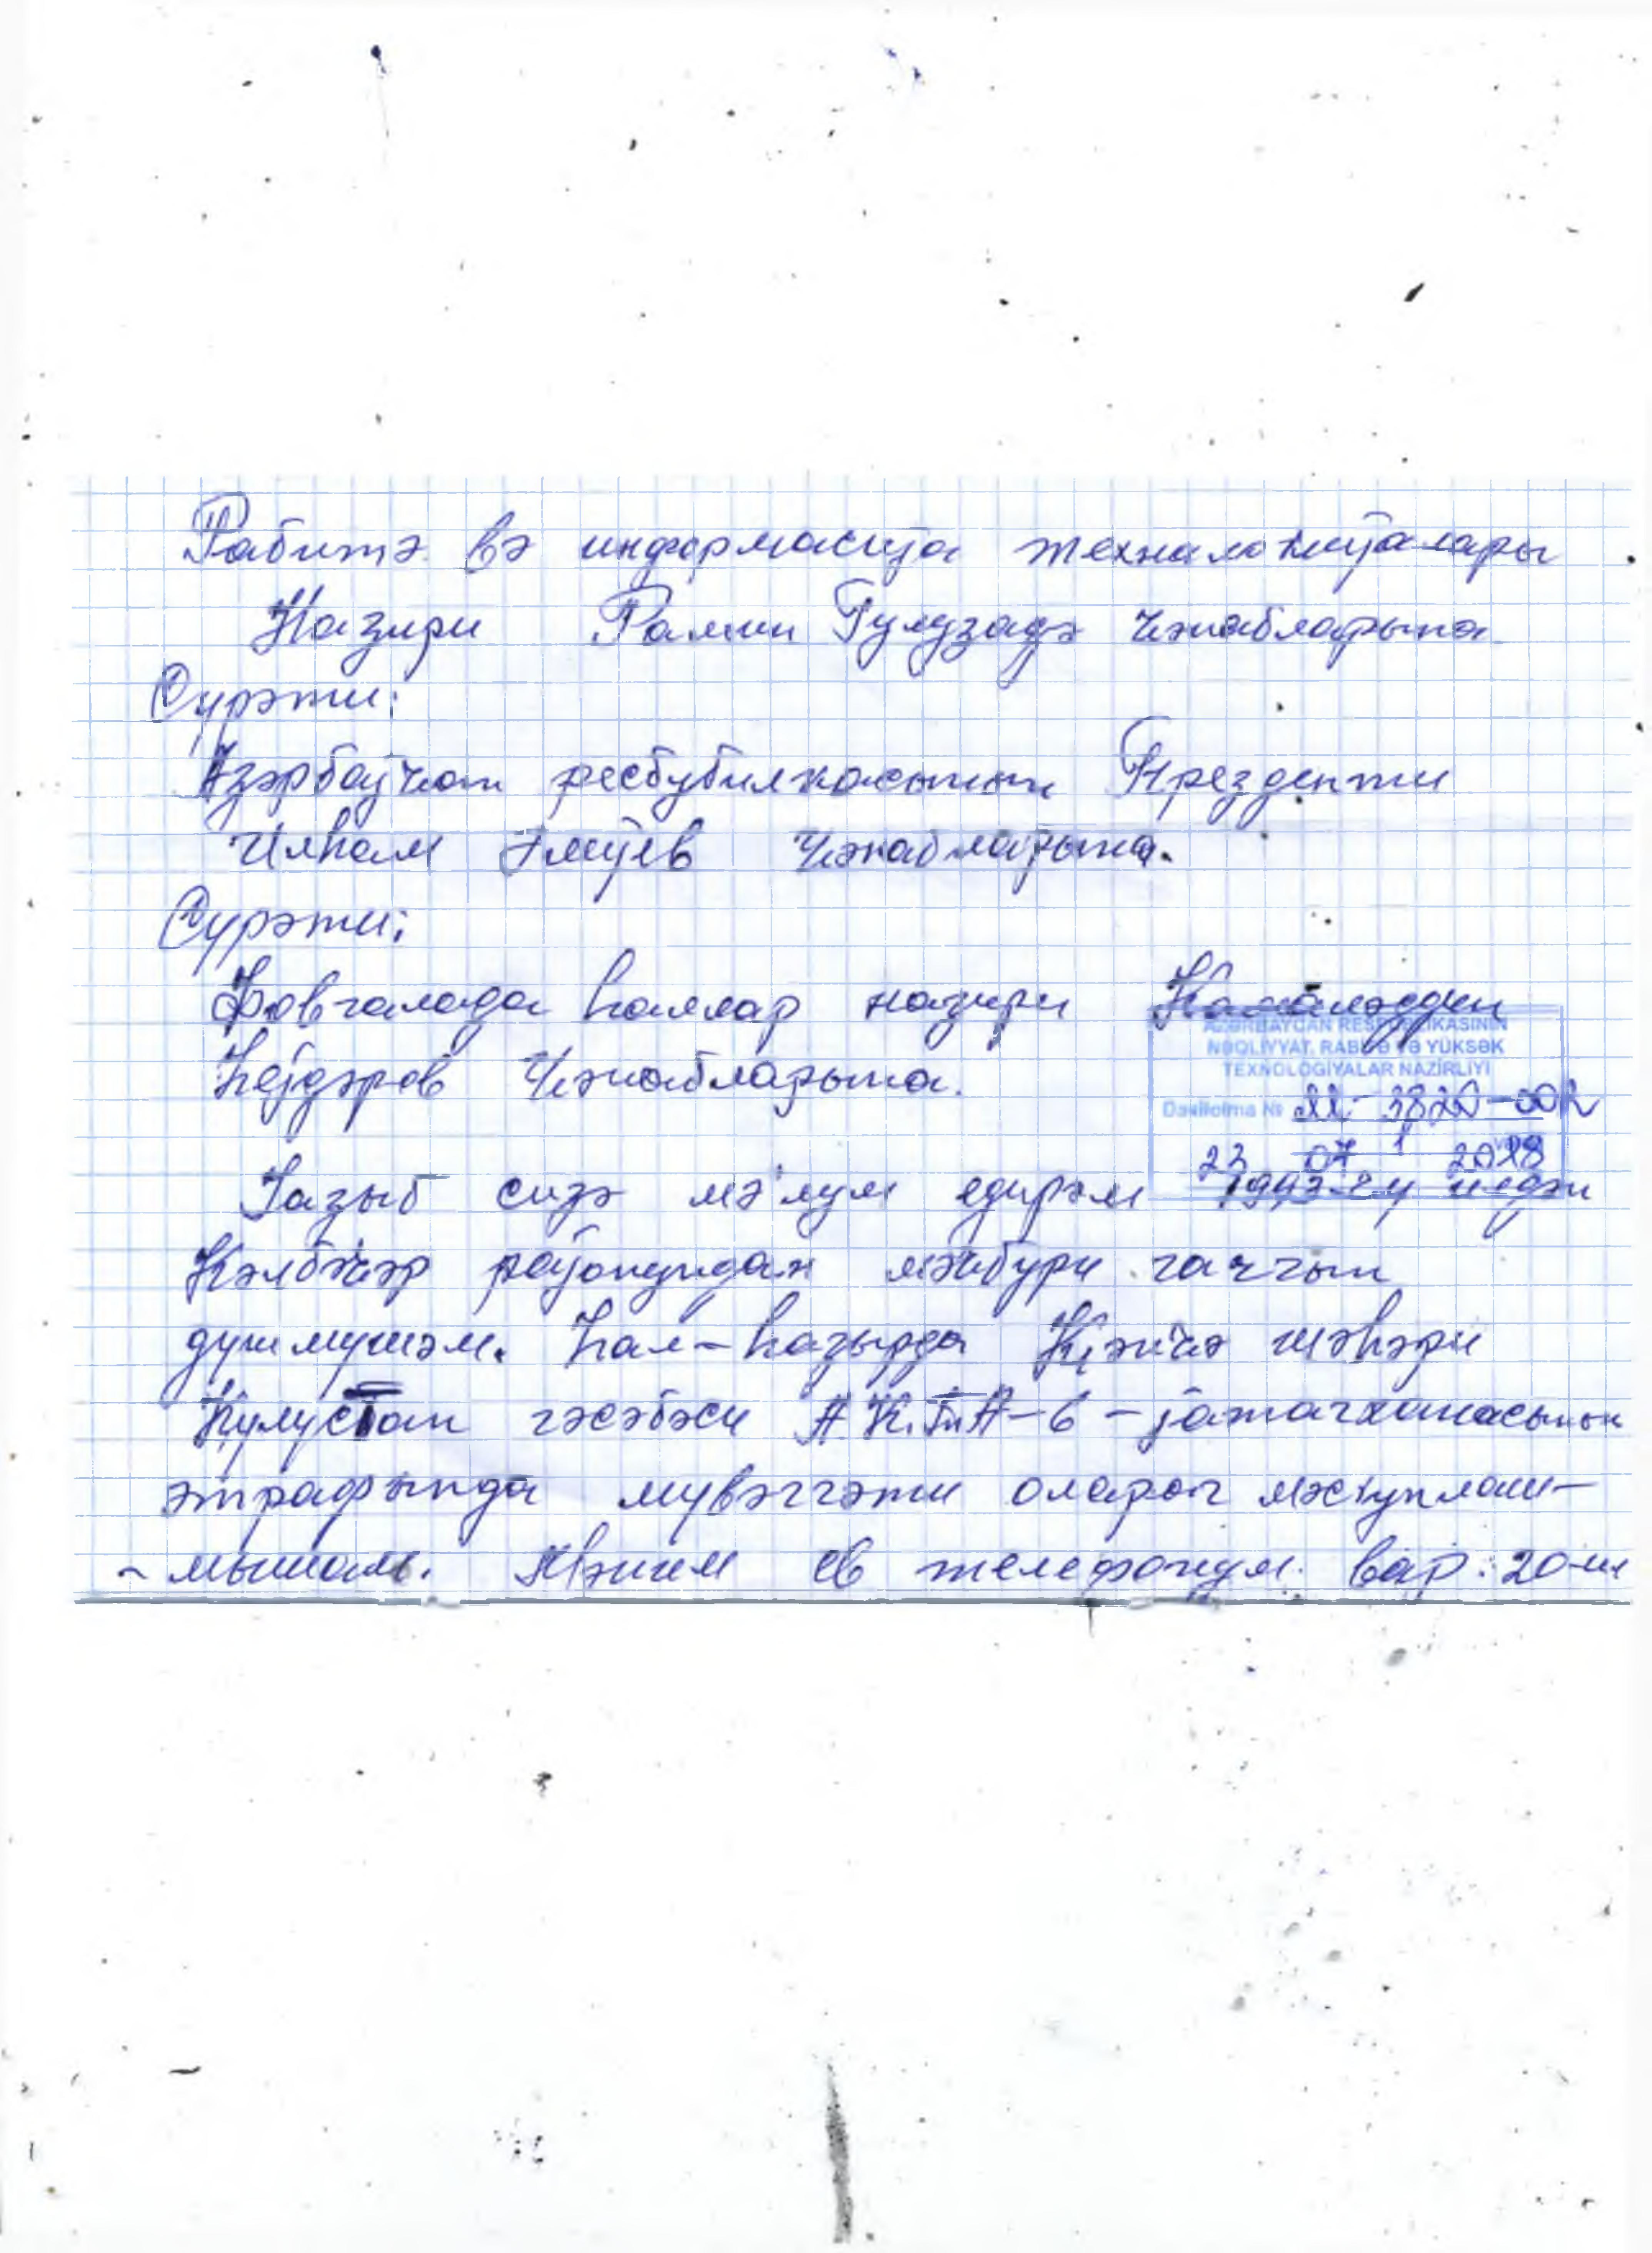 Рабитә вә информасија техналоҝијалары
Назири Рамин Гулузадә Ҹәнабларына
Сурәти:
Азәрбајҹан ресбубилкасынын Президенти
Илһам Әлијев Ҹәнабларына.
Сурәти:
Фовгалада һаллар назири Камаләдден
Һејдәров Ҹәнабларына.
AZƏRBAYCAN RESPUBLİKASININ
NƏQLİYYAT, RABİTƏ VƏ YÜKSƏK
TEXNOLOGİYALAR NAZİRLİYİ
Daxilolma №
23 07 2018
Јазыб сизә мә'лум едирәм 1993-гу илдән
Кәлбәҹәр рајонундан мәҹбури гачгын
душмушәм. Һал-һазырда Ҝәнҹә шәһәри
Ҝулустан гәсәбәси А.К.Т.А-6-јатагханасынын
әтрафында мувәггәти олараг мәскунлаш-
-мышам. Мәним ев телефонум вар: 20-ли